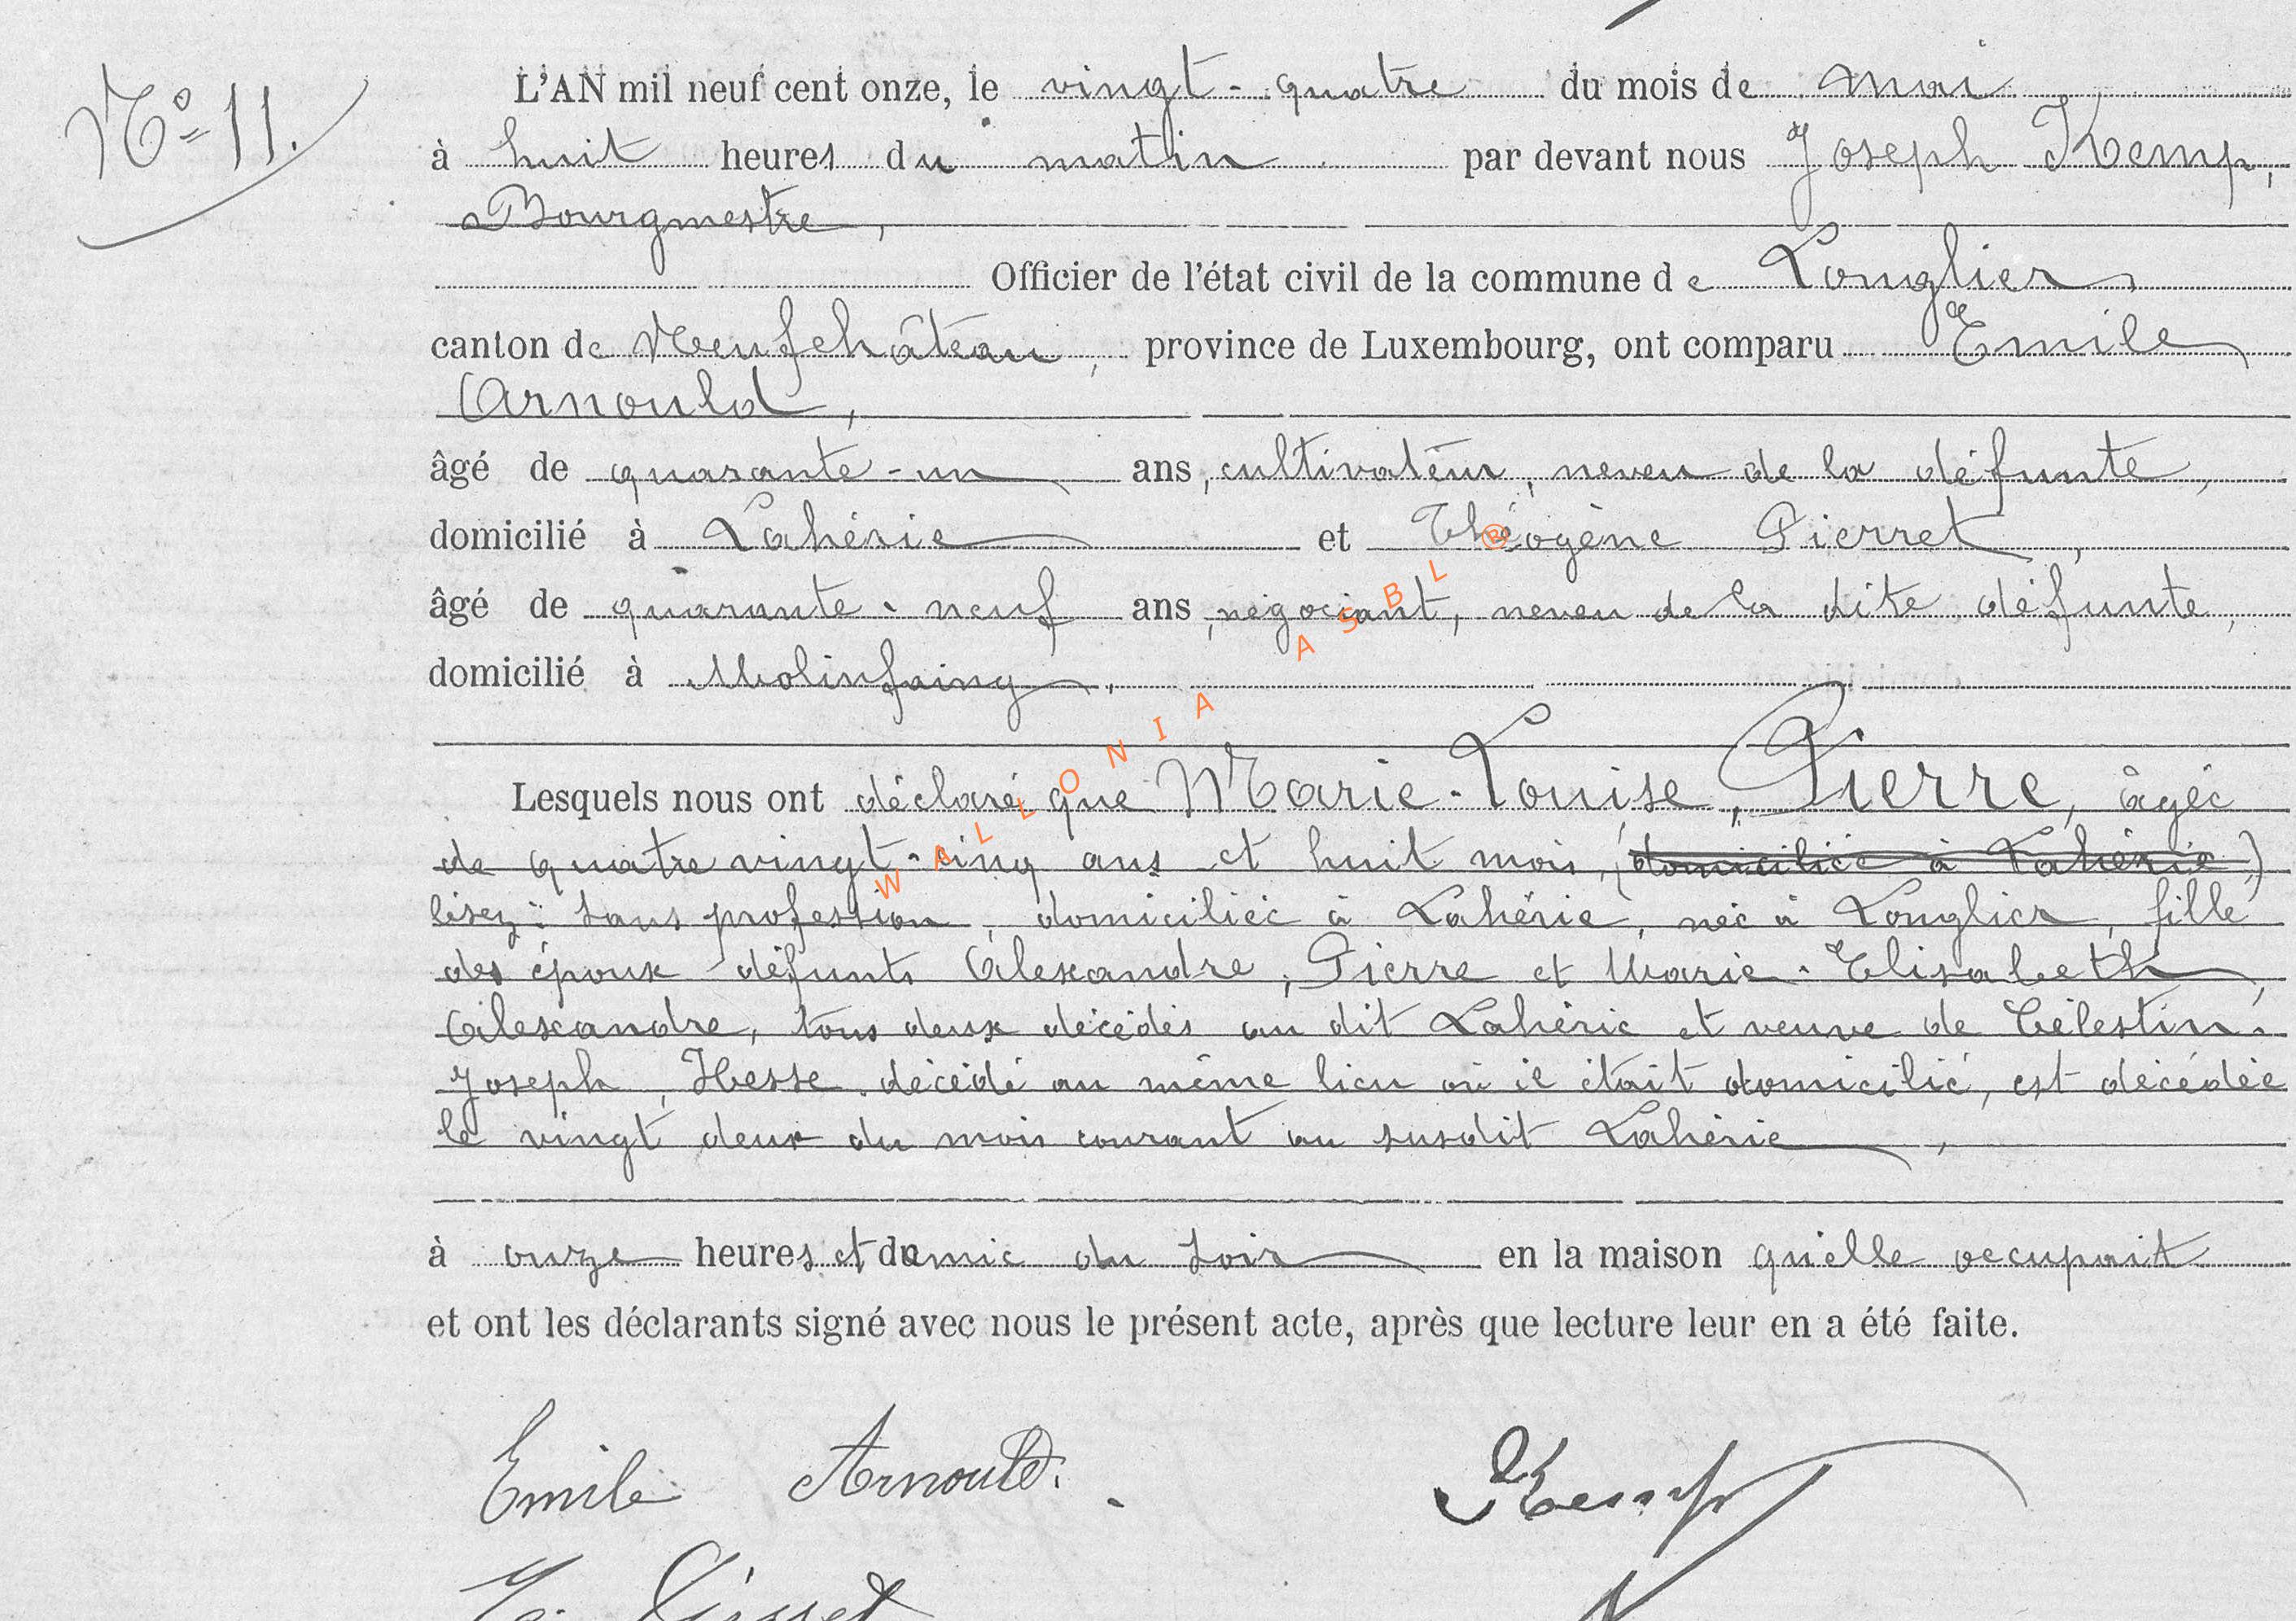 N° 11.
L'AN mil neuf cent onze, le vingt-quatre du mois de mai
à huit heures du matin par devant nous Joseph Kemp,
Bourgmestre,
Officier de l'état civil de la commune de Longlier,
canton de Neufchâteau, province de Luxembourg, ont comparu Emile
Arnould,
âgé de quarante-un ans, cultivateur, neveu de la défunte,
domicilié à Lahérie et Théogène Pierret,
âgé de quarante-neuf ans, négociant, neveu de la dite défunte,
domicilié à Molinfaing,
Lesquels nous ont déclaré que Marie-Louise, Pierre, âgée
de quatre vingt-cinq ans et huit mois, (domiciliée à Lahérie,)
lisez: sans profession, domiciliée à Lahérie, née à Longlier, fille
des époux défunts Alexandre, Pierre et Marie-Elisabeth,
Alexandre, tous deux décédés au dit Lahérie et veuve de Célestin-
Joseph, Hesse, décédé au même lieu où il était domicilié, est décédée
le vingt deux du mois courant au susdit Lahérie,
à onze heures et demie du soir en la maison qu'elle occupait
et ont les déclarants signé avec nous le présent acte, après que lecture leur en a été faite.
Emile Arnould. JKemp
WALLONIA ASBL ®